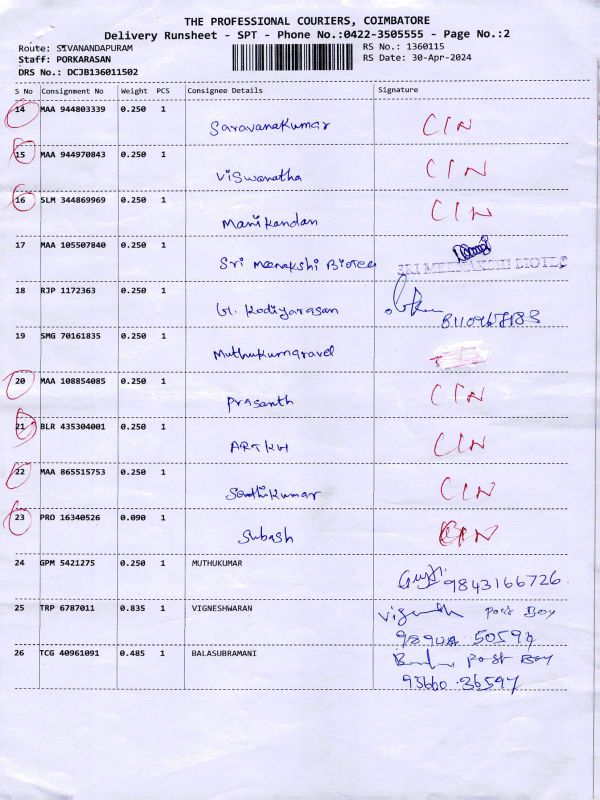 THE PROFESSIONAL COURIERS, COIMBATORE
Delivery Runsheet - SPT - Phone No.:0422-3505555 - Page No.:2
Route: SIVANANDAPURAM RS No.: 1360115
Staff: PORKARASAN RS Date: 30-Apr-2024
DRS No.: DCJB136011502
S No Consignment No Weight PCS Consignee Details Signature
14 MAA 944803339 0.250 1 Saravanakumar CIN
15 MAA 944970843 0.250 1 Viswanatha CIN
16 SLM 344869969 0.250 1 Manikandan CIN
17 MAA 105507840 0.250 1 Sri Meenakshi Biotec SRI MEENAKSHI BIOTEC
18 RJP 1172363 0.250 1 Kodiyarasan
19 SMG 70161835 0.250 1 Muthukumaravel
20 MAA 108854085 0.250 1 Prasanth CIN
21 BLR 435304001 0.250 1 CIN
22 MAA 865515753 0.250 1 Senthikumar CIN
23 PRO 16340526 0.090 1 Subash CIN
24 GPM 5421275 0.250 1 MUTHUKUMAR 9843166726
25 TRP 6787011 0.835 1 VIGNESHWARAN Post Boy
26 TCG 40961091 0.485 1 BALASUBRAMANI Post Boy
93660 36597